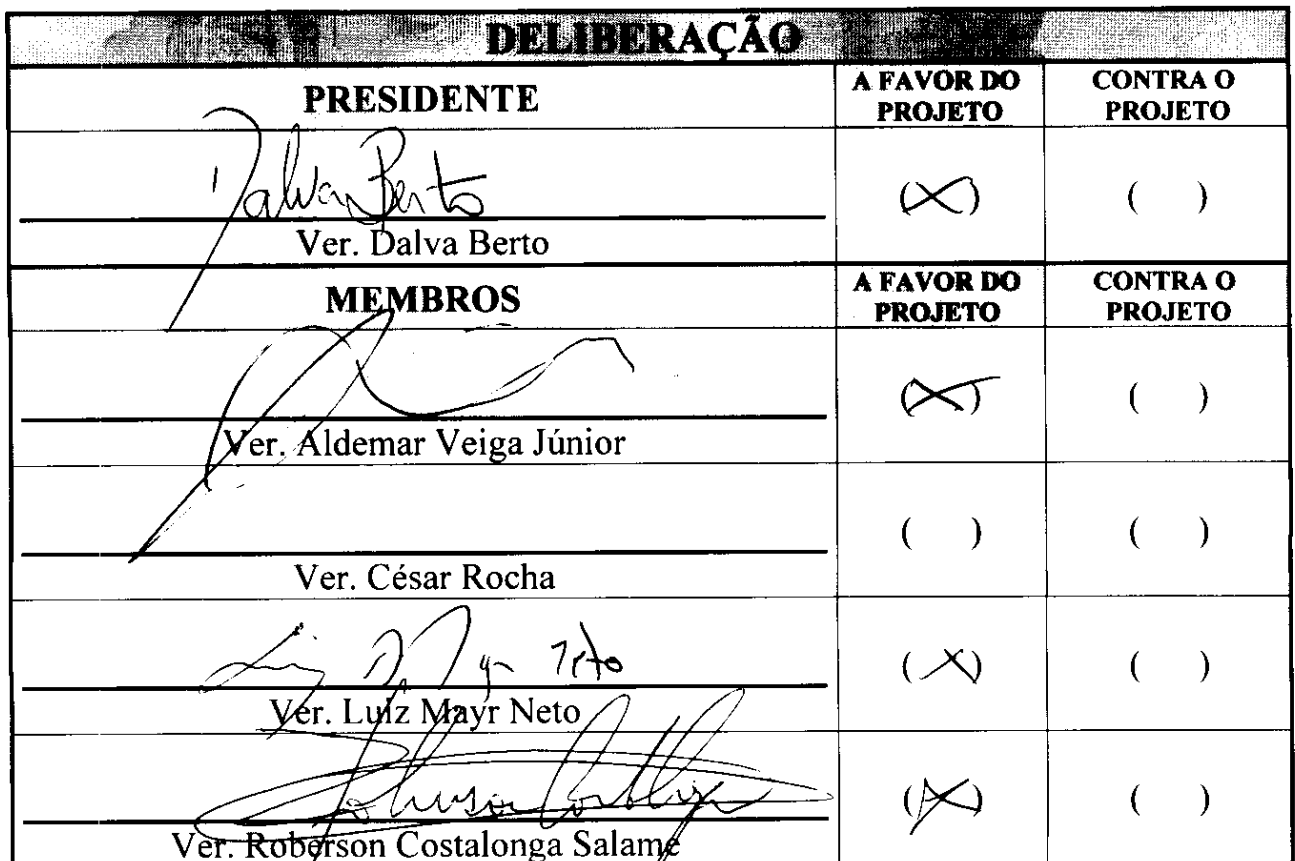 DELIBERAÇÃO
PRESIDENTE A FAVOR DO PROJETO CONTRA O PROJETO
Dalva Berto (X) ( )
Ver. Dalva Berto
MEMBROS A FAVOR DO PROJETO CONTRA O PROJETO
(X) ( )
Ver. Aldemar Veiga Júnior
( ) ( )
Ver. César Rocha
(X) ( )
Ver. Luiz Mayr Neto
(X) ( )
Ver. Roberson Costalonga Salame